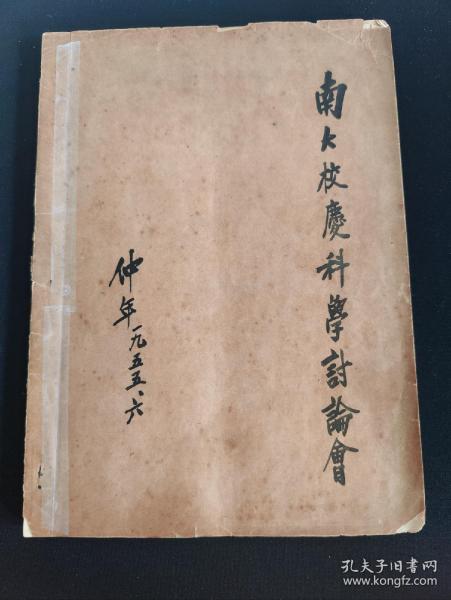 南大校慶科學討論會
仲年一九五五、六
孔夫子旧书网
www.kongfz.com